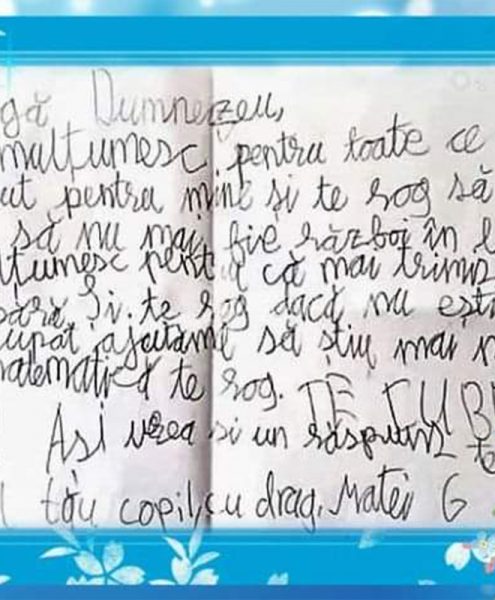 gă Dumnezeu,
mulțumesc pentru toate ce
ut pentru mine și te rog să
să nu mai fie război în l
țumesc pentru că mai trimis
Și te rog dacă nu ești
upat ajutame să știu mai m
matematică te rog. TE IUB
Ași vrea și un răspuns t
tău copil, cu drag, Matei G